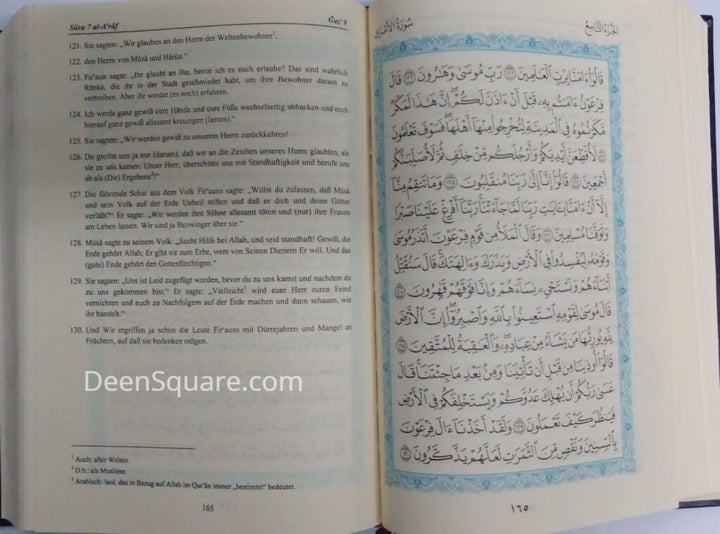 Sūra 7 al-A'rāf
Ǧuz' 9
121. Sie sagten: „Wir glauben an den Herrn der Weltenbewohner¹,
122. den Herrn von Mūsā und Hārūn.“
123. Fir'aun sagte: „Ihr glaubt an Ihn, bevor ich es euch erlaube? Das sind wahrlich
Ränke, die ihr in der Stadt geschmiedet habt, um ihre Bewohner daraus zu
vertreiben. Aber ihr werdet (es noch) erfahren.
124. Ich werde ganz gewiß eure Hände und eure Füße wechselseitig abhacken und euch
hierauf ganz gewiß allesamt kreuzigen (lassen).“
125. Sie sagten: „Wir werden gewiß zu unserem Herrn zurückkehren!
126. Du grollst uns ja nur (darum), daß wir an die Zeichen unseres Herrn glaubten, als
sie zu uns kamen. Unser Herr, überschütte uns mit Standhaftigkeit und berufe uns
ab als (Dir) Ergebene²!“
127. Die führende Schar aus dem Volk Fir'auns sagte: „Willst du zulassen, daß Mūsā
und sein Volk auf der Erde Unheil stiften und daß er dich und deine Götter
verläßt?“ Er sagte: „Wir werden ihre Söhne allesamt töten und (nur) ihre Frauen
am Leben lassen. Wir sind ja Bezwinger über sie.“
128. Mūsā sagte zu seinem Volk: „Sucht Hilfe bei Allah, und seid standhaft! Gewiß, die
Erde gehört Allah; Er gibt sie zum Erbe, wem von Seinen Dienern Er will. Und das
(gute) Ende gehört den Gottesfürchtigen.“
129. Sie sagten: „Uns ist Leid zugefügt worden, bevor du zu uns kamst und nachdem du
zu uns gekommen bist.“ Er sagte: „Vielleicht³ wird euer Herr euren Feind
vernichten und euch zu Nachfolgern auf der Erde machen und dann schauen, wie
ihr handelt.“
130. Und Wir ergriffen ja schon die Leute Fir'auns mit Dürrejahren und Mangel an
Früchten, auf daß sie bedenken mögen.
DeenSquare.com
¹ Auch: aller Welten.
² D.h.: als Muslime.
³ Arabisch: 'asā, das in Bezug auf Allah im Qur'ān immer „bestimmt“ bedeutet.
165
الجزء التاسع
سورة الأعراف
قَالُوٓا۟ ءَامَنَّا بِرَبِّ ٱلْعَٰلَمِينَ ١٢١ رَبِّ مُوسَىٰ وَهَٰرُونَ ١٢٢ قَالَ
فِرْعَوْنُ ءَامَنتُم بِهِۦ قَبْلَ أَنْ ءَاذَنَ لَكُمْ ۖ إِنَّ هَٰذَا لَمَكْرٌ
مَّكَرْتُمُوهُ فِى ٱلْمَدِينَةِ لِتُخْرِجُوا۟ مِنْهَآ أَهْلَهَا ۖ فَسَوْفَ تَعْلَمُونَ
١٢٣ لَأُقَطِّعَنَّ أَيْدِيَكُمْ وَأَرْجُلَكُم مِّنْ خِلَٰفٍ ثُمَّ لَأُصَلِّبَنَّكُمْ
أَجْمَعِينَ ١٢٤ قَالُوٓا۟ إِنَّآ إِلَىٰ رَبِّنَا مُنقَلِبُونَ ١٢٥ وَمَا تَنقِمُ مِنَّآ
إِلَّآ أَنْ ءَامَنَّا بِـَٔايَٰتِ رَبِّنَا لَمَّا جَآءَتْنَا ۚ رَبَّنَآ أَفْرِغْ عَلَيْنَا صَبْرًا
وَتَوَفَّنَا مُسْلِمِينَ ١٢٦ وَقَالَ ٱلْمَلَأُ مِن قَوْمِ فِرْعَوْنَ أَتَذَرُ مُوسَىٰ
وَقَوْمَهُۥ لِيُفْسِدُوا۟ فِى ٱلْأَرْضِ وَيَذَرَكَ وَءَالِهَتَكَ ۚ قَالَ سَنُقَتِّلُ
أَبْنَآءَهُمْ وَنَسْتَحْىِۦ نِسَآءَهُمْ وَإِنَّا فَوْقَهُمْ قَٰهِرُونَ ١٢٧
قَالَ مُوسَىٰ لِقَوْمِهِ ٱسْتَعِينُوا۟ بِٱللَّهِ وَٱصْبِرُوٓا۟ ۖ إِنَّ ٱلْأَرْضَ
لِلَّهِ يُورِثُهَا مَن يَشَآءُ مِنْ عِبَادِهِۦ ۖ وَٱلْعَٰقِبَةُ لِلْمُتَّقِينَ ١٢٨
قَالُوٓا۟ أُوذِينَا مِن قَبْلِ أَن تَأْتِيَنَا وَمِنۢ بَعْدِ مَا جِئْتَنَا ۚ قَالَ
عَسَىٰ رَبُّكُمْ أَن يُهْلِكَ عَدُوَّكُمْ وَيَسْتَخْلِفَكُمْ فِى ٱلْأَرْضِ
فَيَنظُرَ كَيْفَ تَعْمَلُونَ ١٢٩ وَلَقَدْ أَخَذْنَآ ءَالَ فِرْعَوْنَ
بِٱلسِّنِينَ وَنَقْصٍ مِّنَ ٱلثَّمَرَٰتِ لَعَلَّهُمْ يَذَّكَّرُونَ ١٣٠
١٦٥